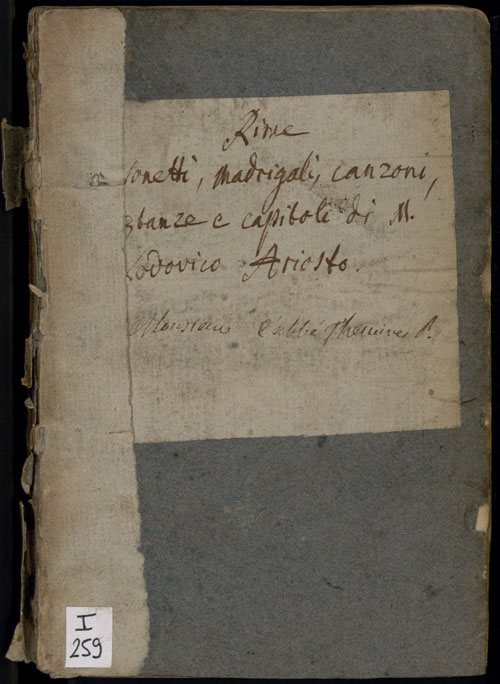 Rime
Sonetti, madrigali, canzoni,
stanze e capitoli di M.
Lodovico Ariosto.
Monsieur l'abbé
I
259